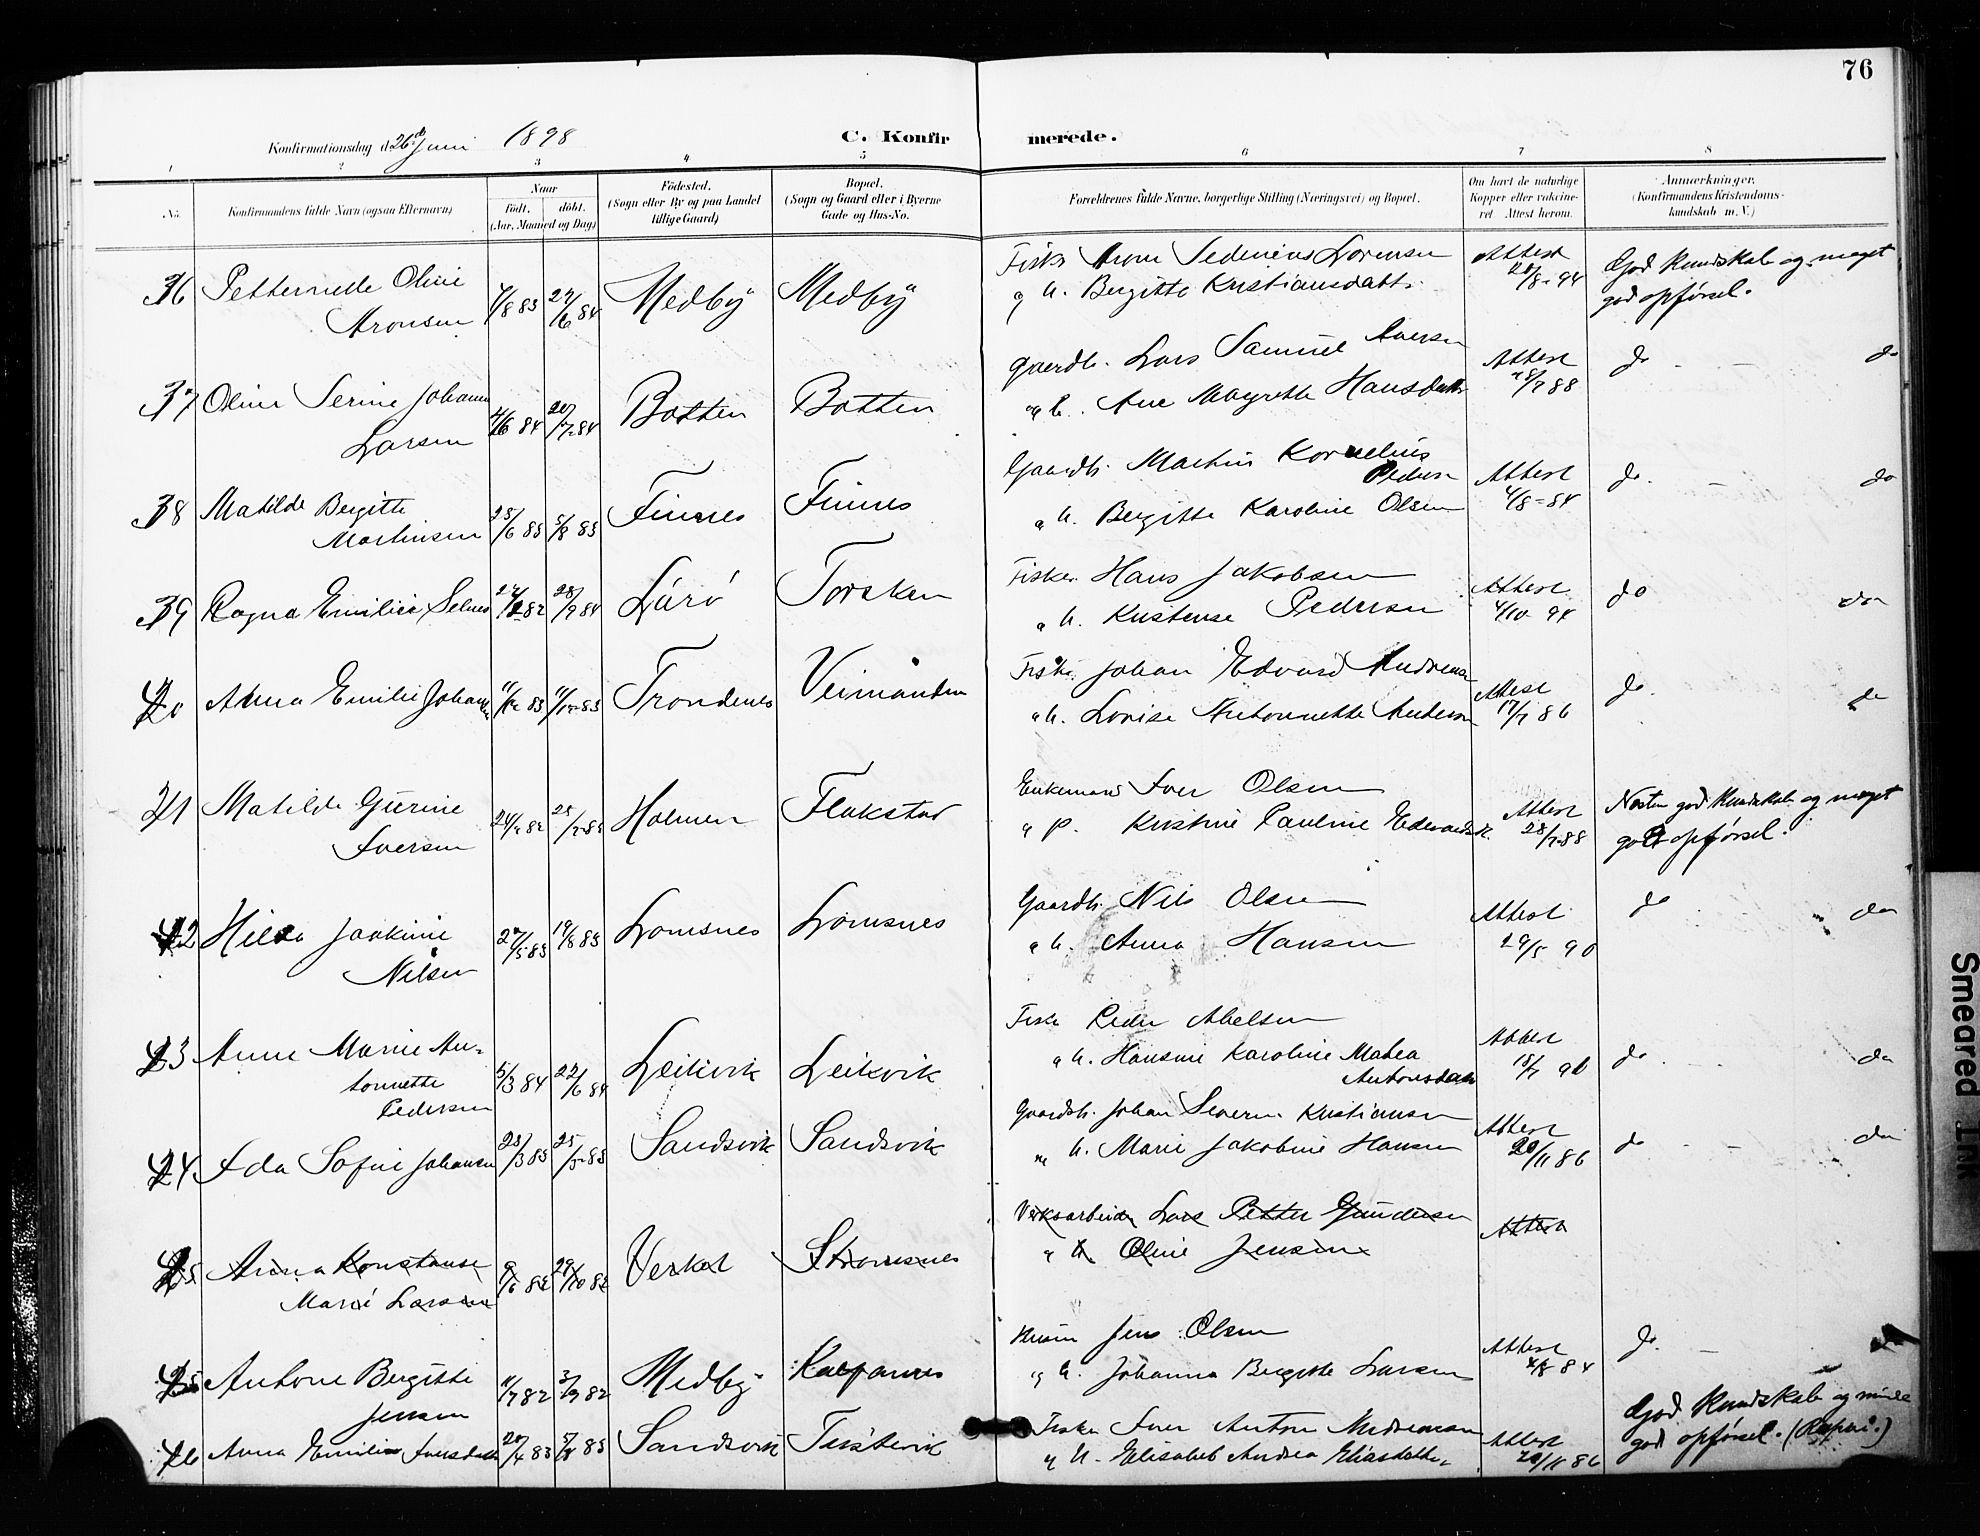 76
Konfirmationsdag d. 26de Juni 1898
C. Konfirmerede.
1 2 3 4 5 6 7 8
No.
Konfirmandens fulde Navn (ogsaa Efternavn)
Naar
Født. døbt.
(Aar, Maaned og Dag)
Fødested.
(Sogn eller By og paa Landet
tillige Gaard)
Bopæl.
(Sogn og Gaard eller i Byerne
Gade og Hus-No.
Forældrenes fulde Navne, borgerlige Stilling (Næringsvei) og Bopæl.
Om havt de naturlige
Kopper eller vaccine-
ret. Attest herom.
Anmærkninger.
(Konfirmandens Kristendoms-
kundskab m. V.)
36 Petternelle Oline
Aronsen
7/8 83 27/6 84 Medby Medby
Fisker Aron Sedenius Lorensen
og h. Bergitte Kristiansdatt.
Attest
God Kundskab og meget
god opførsel.
37 Oline Serine Johanne
Larsen
4/6 84 20/7 84 Botten Botten
Gaardb. Lars Samuel Iversen
og h. Ane Magrethe Hansdatter
Attest
18/7 88
do - do
38 Matilde Bergitte
Martinsen
25/6 83 5/8 83 Finnes Finnes
Gaardb. Martin Kornelius
Pedersen
og h. Bergitte Karoline Olsen
Attest
4/8 - 84
do. - do
39 Ragna Emilie Selnes
28/9 84 Lárö Torsken
Fisker Hans Jakobsen
og h. Kristense Pedersen
Attest
4/10 94
do do
40 Anna Emilie Johansen
Trondenes Veimanden
Fisker Johan Edvard Andreasen
og h. Lovise Antonnette Andersen
Attest
17/7 86
do. do
41 Matilde Gurine
Iversen
Holmen Flakstad
Enkemand Iver Olsen
og p. Kristine Pauline Edevardsd.
Attest
28/7 88
Næsten god Kundskab og meget
god opførsel.
42 Hilda Joakime
Nilsen
27/5 83 19/8 83 Lomsnes Lomsnes
Gaardb. Nils Olsen
og h. Anna Hansen
Attest
29/5 90
do do
43 Anne Marie An-
tonnette
Pedersen
5/3 84 22/6 84 Leikvik Leikvik
Fisker Peder Abelsen
og h. Hansine Karoline Matea
Antonsdatter
Attest
18/7 90
do. do
44 Ida Sofie Johansen
23/3 83 25/5 83 Sandsvik Sandsvik
Gaardb. Johan Severin Kristiansen
og h. Marie Jakobine Hansen
Attest
20/11 86
do - - do
45 Anna Konstanse
Marie Larsen
9/6 82 29/10 82 Verket Straumsnes
Verksarbeider Lars Petter Gundersen
og h. Oline Jensen
Attest
45 Antone Bergitte
Jensen
11/7 82 3/9 82 Medby Kaspanes
Husm. Jens Olsen
og h. Johanna Bergitte Larsen
Attest
4/8 84
do. -
46 Anna Emilie Iversdatter
20/4 83 5/8 83 Sandsvik Tuftevik
Fisker Iver Anton Andreasen
og h. Elisabeb Andrea Eliasdatter
Attest
20/11 86
God Kundskab og mindre
god opførsel.
Smeared Ink